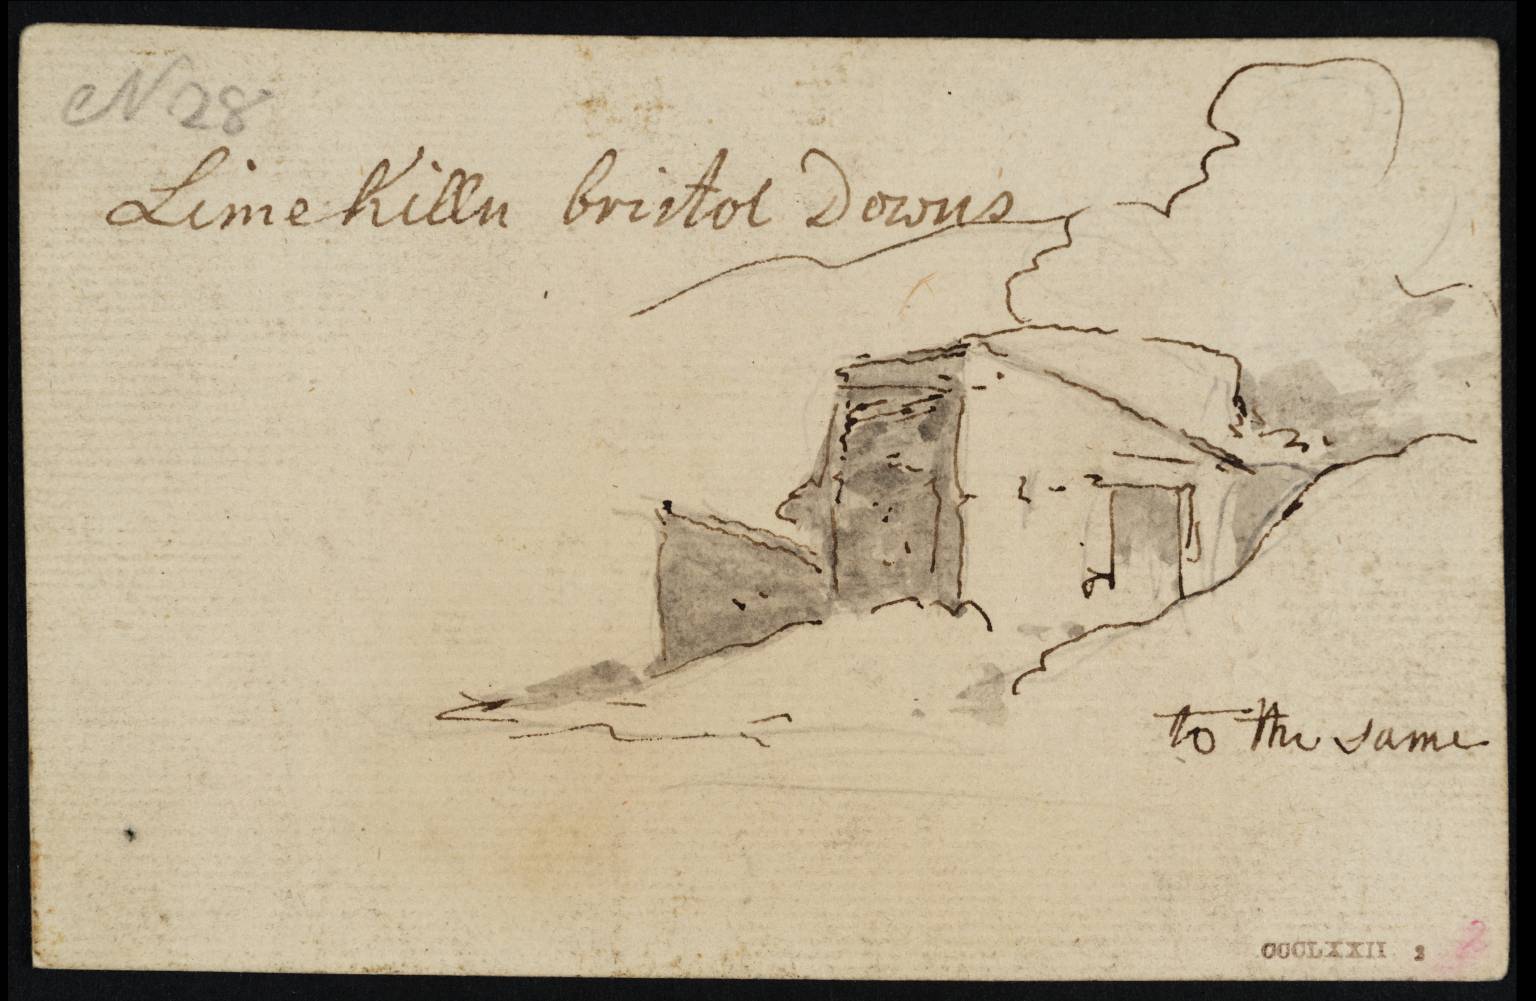 N 28
Lime Killn bristol Downs
to the same
CCCLXXII 2
2